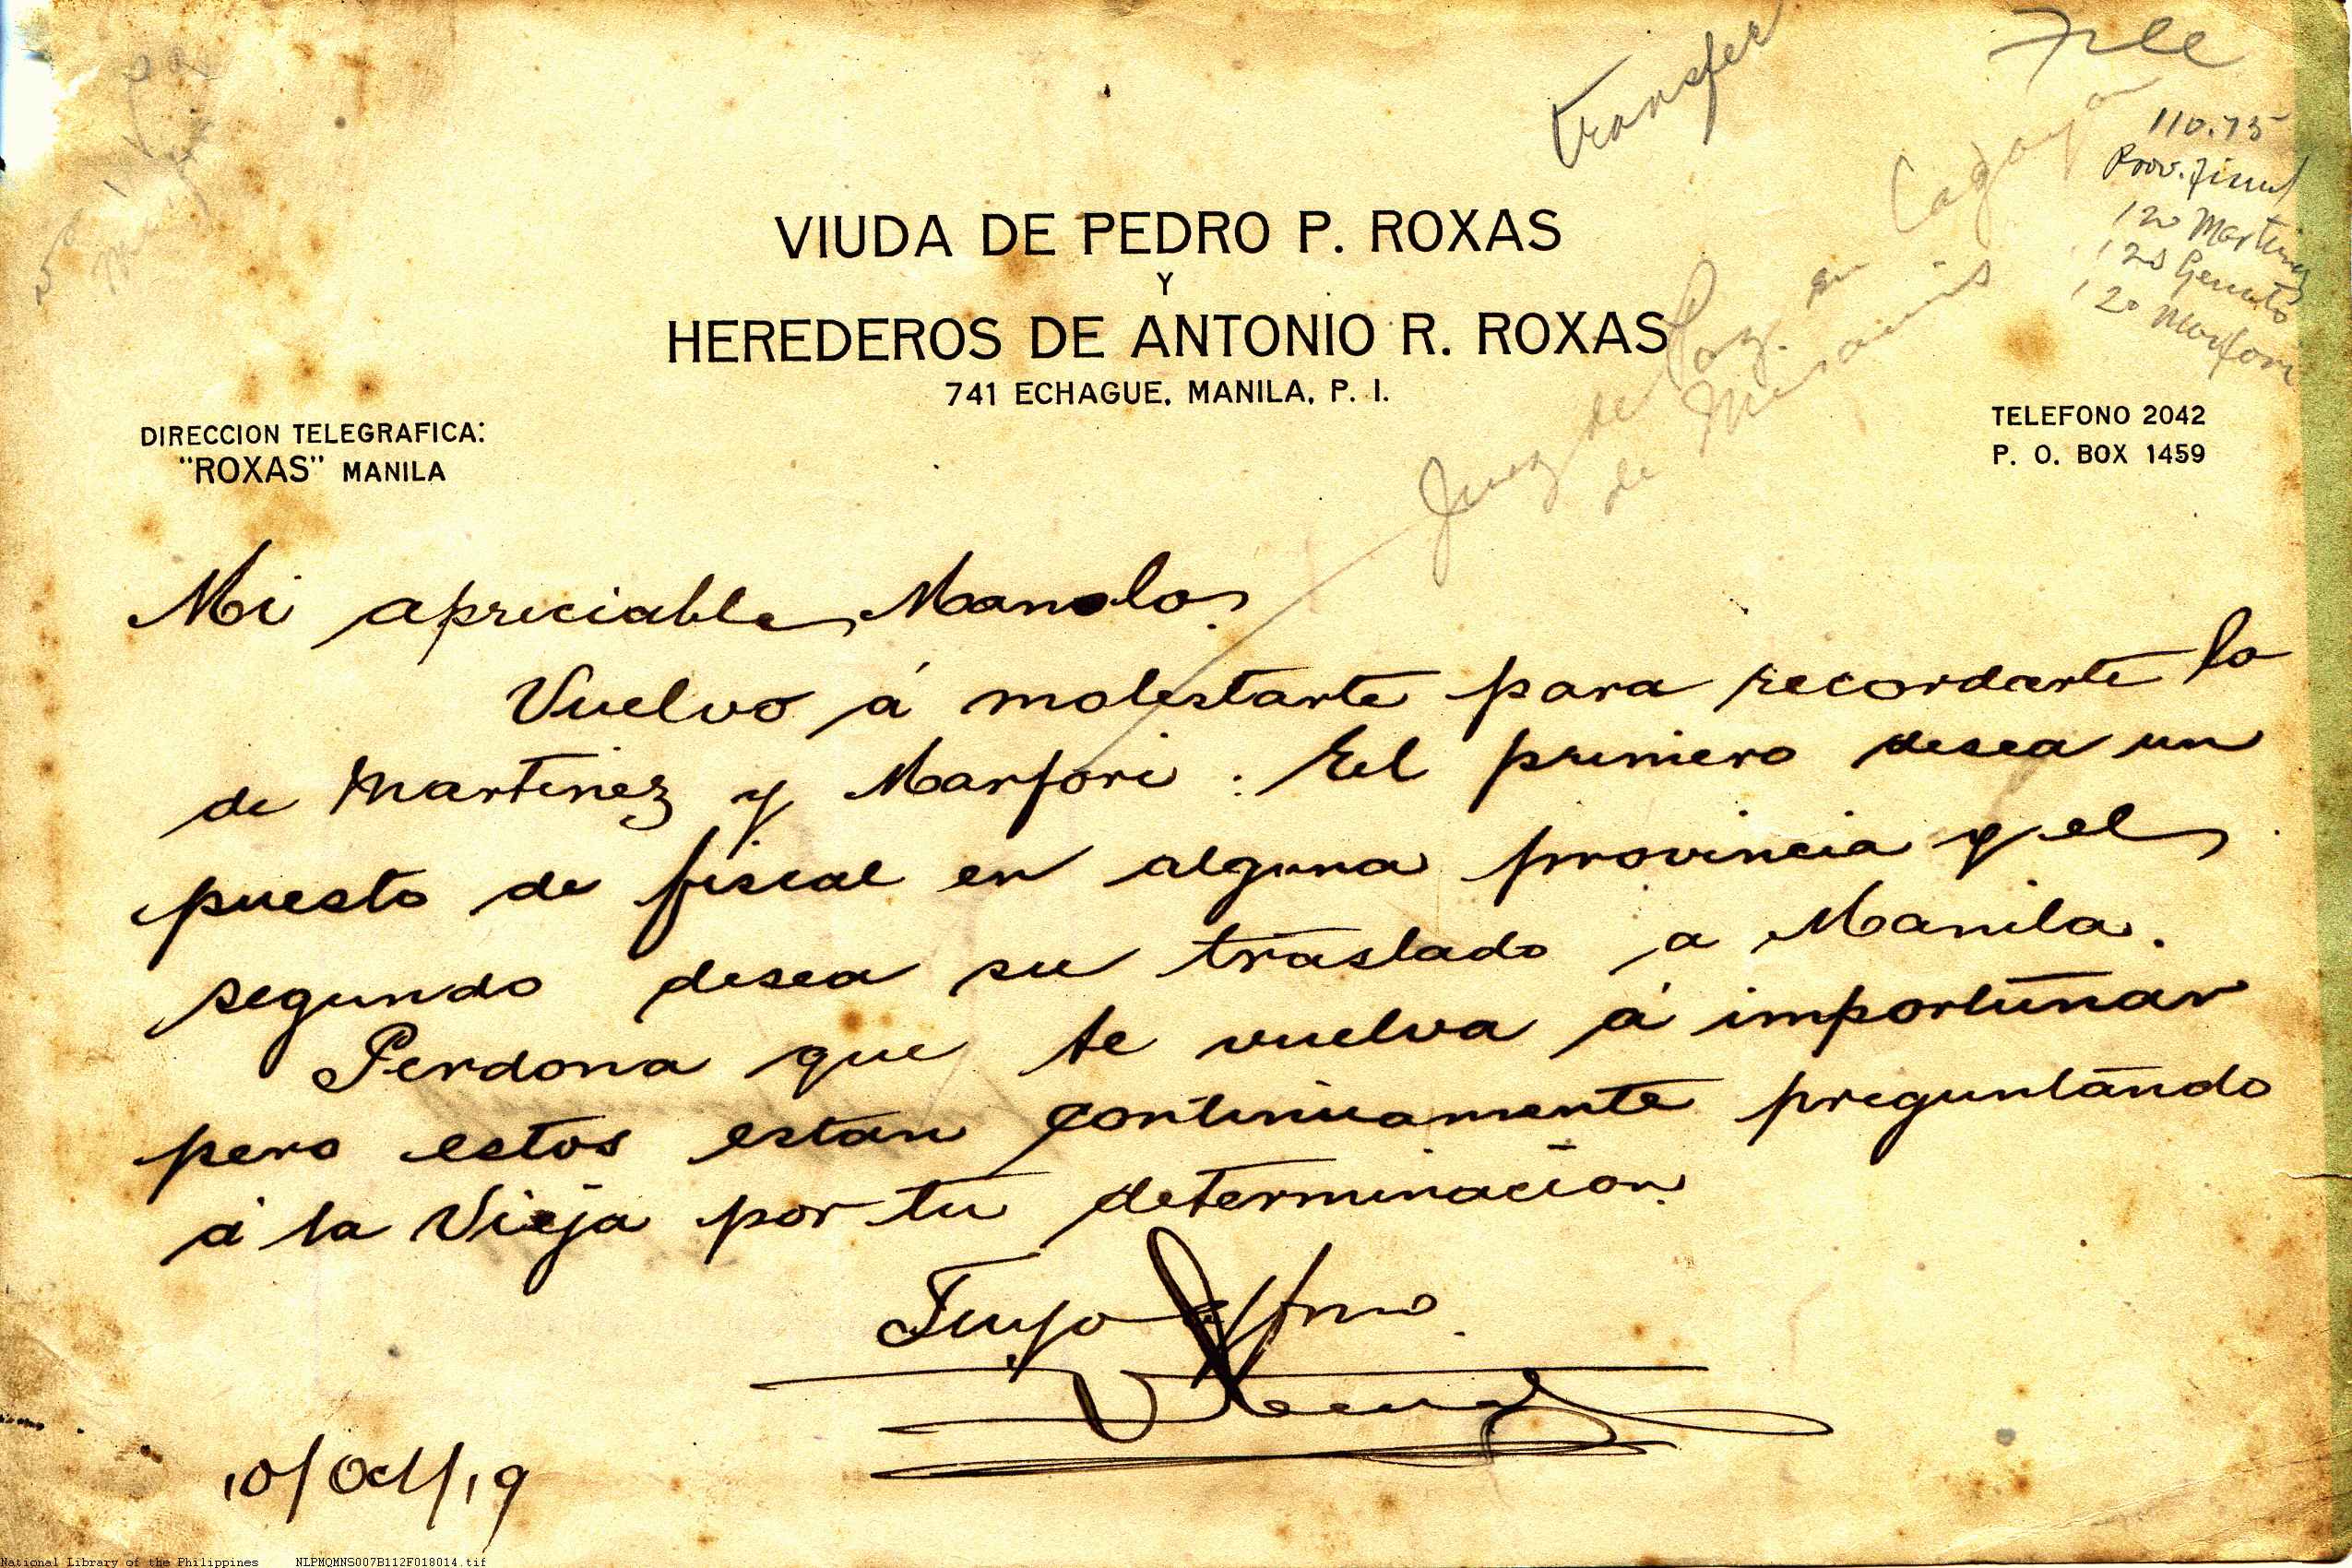 transfer
File
110.75
Prov. Fiscal
120 Martinez
120 Genato
120 Marfori
Juez de Paz en Cagayan
de Misamis
VIUDA DE PEDRO P. ROXAS
Y
HEREDEROS DE ANTONIO R. ROXAS
741 ECHAGUE, MANILA, P. I.
DIRECCION TELEGRAFICA:
"ROXAS" MANILA
TELEFONO 2042
P. O. BOX 1459
Mi apreciable Manolo.
Vuelvo á molestarte para recordarte lo
de Martinez y Marfori. El primero desea un
puesto de fiscal en alguna provincia y el
segundo desea su traslado a Manila.
Perdona que te vuelva á importunar
pero estos estan continuamente preguntando
á la Vieja por tu determinacion.
Tuyo affmo.
10/Oct/19
National Library of the Philippines NLPMQMNS007B112F018014.tif